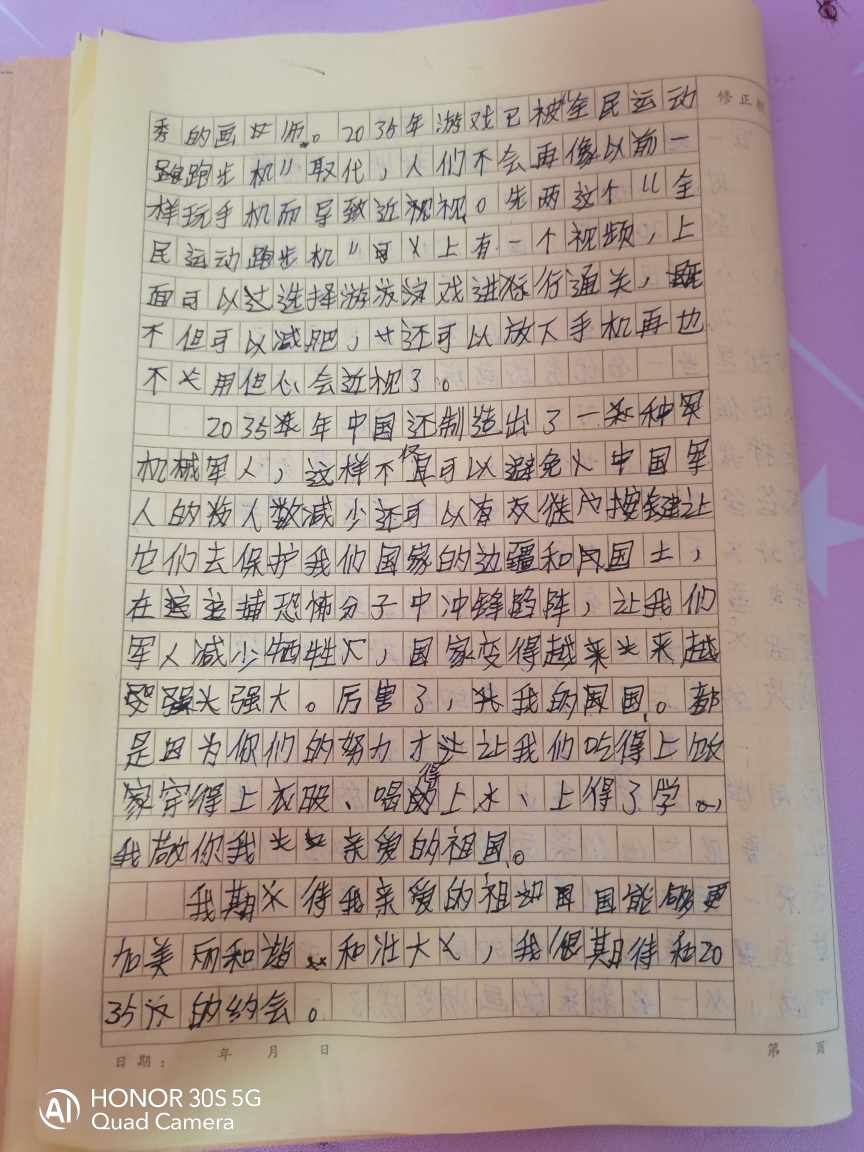 秀的画女师。2035年游戏已被“全民运动
跑步机”取代，人们不会再像以前一
样玩手机而导致近视。先两这个“全
民运动跑步机”上有一个视频，上
面可以选择游戏进行通关，既
不但可以减肥，还可以放下手机再也
不用但心会近视了。
2035年中国还制造出了一种军
机械军人，这样不仅可以避免中国军
人的人数减少还可以按键让
它们去保护我们国家的边疆和国土，
在捕恐怖分子中冲锋陷阵，让我们
军人减少牺牲，国家变得越来越
强大。厉害了，我的国。都
是因为你们的努力才让我们吃得上饭
家穿得上衣服、喝得上水、上得了学，
我敬你我亲爱的祖国。
我期待我亲爱的祖国能够更
加美丽和谐和壮大，我很期待和20
35的约会。
修正
日期： 年 月 日
第 页
AI HONOR 30S 5G
Quad Camera